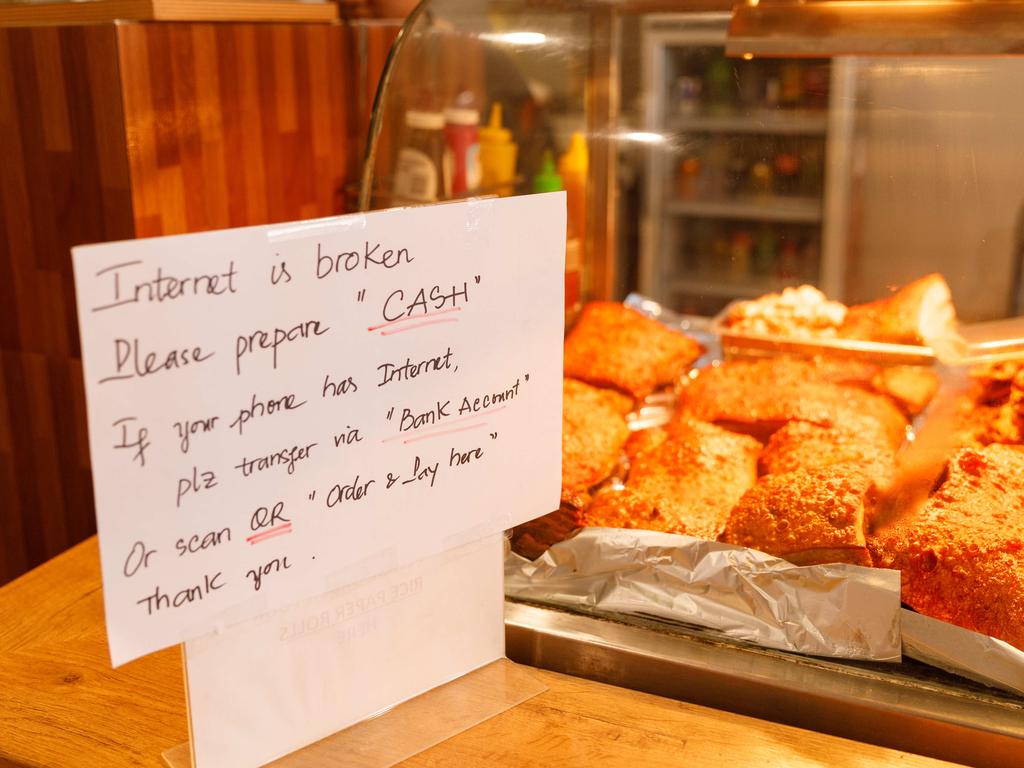 Internet is broken
Please prepare "CASH"
If your phone has Internet,
plz transfer via "Bank Account"
Or scan QR "Order & Pay here"
Thank you.
RICE PAPER ROLLS
HERE